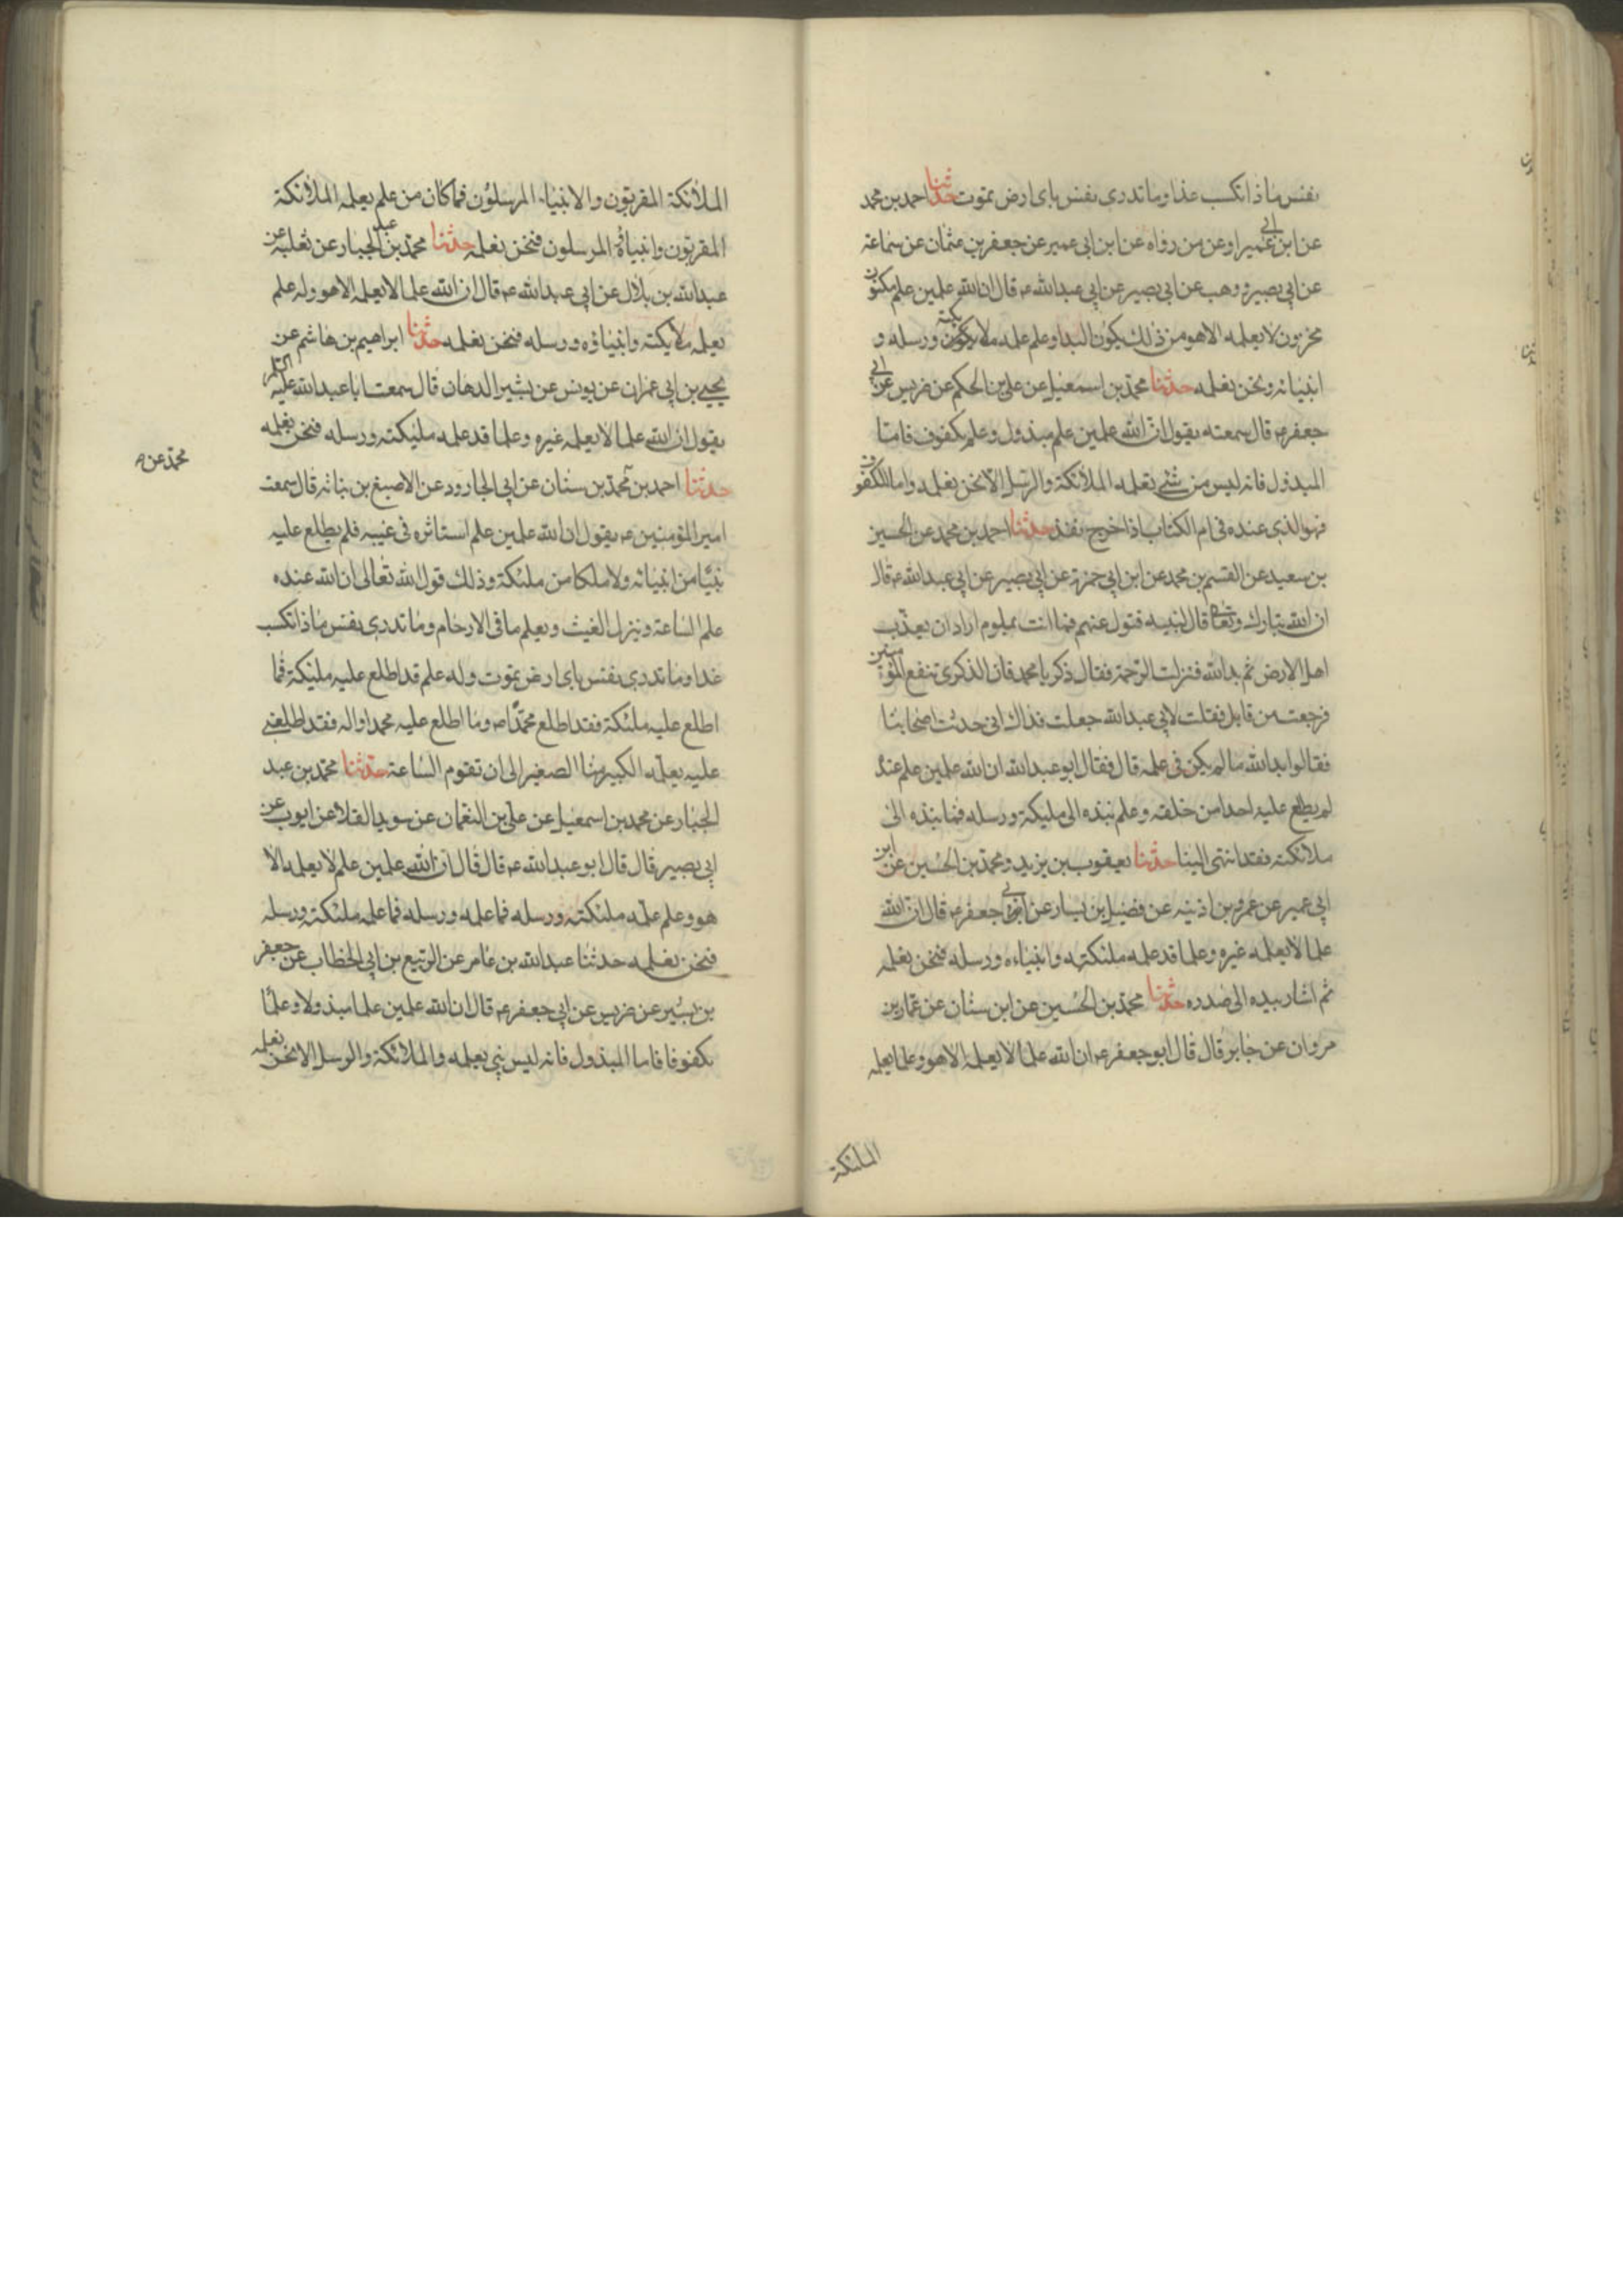 نفس ماذا تكسب غدا وما تدرى نفس باى ارض تموت حدثنا احمد بن محمد
عن ابن ابى عمير او عن من رواه عن ابن ابى عمير عن جعفر بن عثمان عن سماعة
عن ابى بصير و وهب عن ابى بصير عن ابى عبدالله ع قال ان لله علمين علم مكنون
مخزون لا يعلمه الا هو من ذلك يكون البدا و علم علمه ملايكته و رسله و
انبيائه و نحن نعلمه حدثنا محمد بن اسمعيل عن على بن الحكم عن ضريس عن ابى
جعفر ع قال سمعته يقول ان لله علمين علم مبذول و علم مكفوف فاما
المبذول فانه ليس من شئ تعلمه الملائكة والرسل الا نحن نعلمه واما المكفوف
فهو الذى عنده فى ام الكتاب اذا خرج نفذ حدثنا احمد بن محمد عن الحسين
بن سعيد عن القسم بن محمد عن ابن ابى حمزة عن ابى بصير عن ابى عبدالله ع قال
ان الله تبارك وتعالى قال لنبيه فتول عنهم فما انت بملوم اراد ان يعذب
اهل الارض ثم بدا لله فنزلت الرحمة فقال ذكر يا محمد فان الذكرى تنفع المؤمنين
فرجعت من قابل فقلت لابى عبدالله جعلت فداك انى حدثت اصحابنا
فقالوا بدا لله ما لم يكن فى علمه قال فقال ابو عبدالله ان لله علمين علم عنده
لم يطلع عليه احدا من خلقه و علم نبذه الى مليكته و رسله فما نبذه الى
ملائكته فقد انتهى الينا حدثنا يعقوب بن يزيد و محمد بن الحسين عن ابن
ابى عمير عن عمر بن اذينه عن فضيل بن يسار عن ابى جعفر ع قال ان لله
علما لا يعلمه غيره و علما قد علمه ملئكته و انبياءه و رسله فنحن نعلمه
ثم اشار بيده الى صدره حدثنا محمد بن الحسين عن ابن سنان عن عمار بن
مروان عن جابر قال قال ابو جعفر ع ان لله علما لا يعلمه الا هو و علما يعلمه
الملئكة
الملائكة المقربون والانبياء المرسلون فما كان من علم يعلمه الملائكة
المقربون وانبياؤه المرسلون فنحن نعلمه حدثنا محمد بن عبد الجبار عن ثعلبة عن
عبدالله بن بلال عن ابى عبدالله ع قال ان لله علما لا يعلمه الا هو وله علم
يعلمه ملايكته وانبياؤه ورسله فنحن نعلمه حدثنا ابراهيم بن هاشم عن
يحيى بن ابى عمران عن يونس عن بشير الدهان قال سمعت ابا عبدالله عليه السلام
يقول ان لله علما لا يعلمه غيره وعلما قد علمه مليكته ورسله فنحن نعلمه
محمد عن
حدثنا احمد بن محمد بن سنان عن ابى الجارود عن الاصبغ بن نباته قال سمعت
امير المؤمنين ع يقول ان لله علمين علم استاثره فى غيبه فلم يطلع عليه
نبيا من انبيائه ولا ملكا من ملئكته وذلك قول الله تعالى ان الله عنده
علم الساعة وينزل الغيث ويعلم ما فى الارحام وما تدرى نفس ماذا تكسب
غدا وما تدرى نفس باى ارض تموت وله علم قد اطلع عليه مليكته فما
اطلع عليه ملئكته فقد اطلع محمدا ص وما اطلع عليه محمدا واله فقد اطلعنى
عليه يعلمه الكبير منا الصغير الى ان تقوم الساعة حدثنا محمد بن عبد
الجبار عن محمد بن اسمعيل عن على بن النعمان عن سويد القلا عن ايوب عن
ابى بصير قال قال ابو عبدالله ع قال قال ان لله علمين علم لا يعلمه الا
هو وعلم علمه ملئكته ورسله فما علمه ورسله فما علمه ملئكته ورسله
فنحن نعلمه حدثنا عبدالله بن عامر عن الربيع بن ابى الخطاب عن جعفر
بن بشير عن ضريس عن ابى جعفر ع قال ان لله علمين علما مبذولا وعلما
مكفوفا فاما المبذول فانه ليس نبى يعلمه والملائكة والرسل الا نحن نعلمه